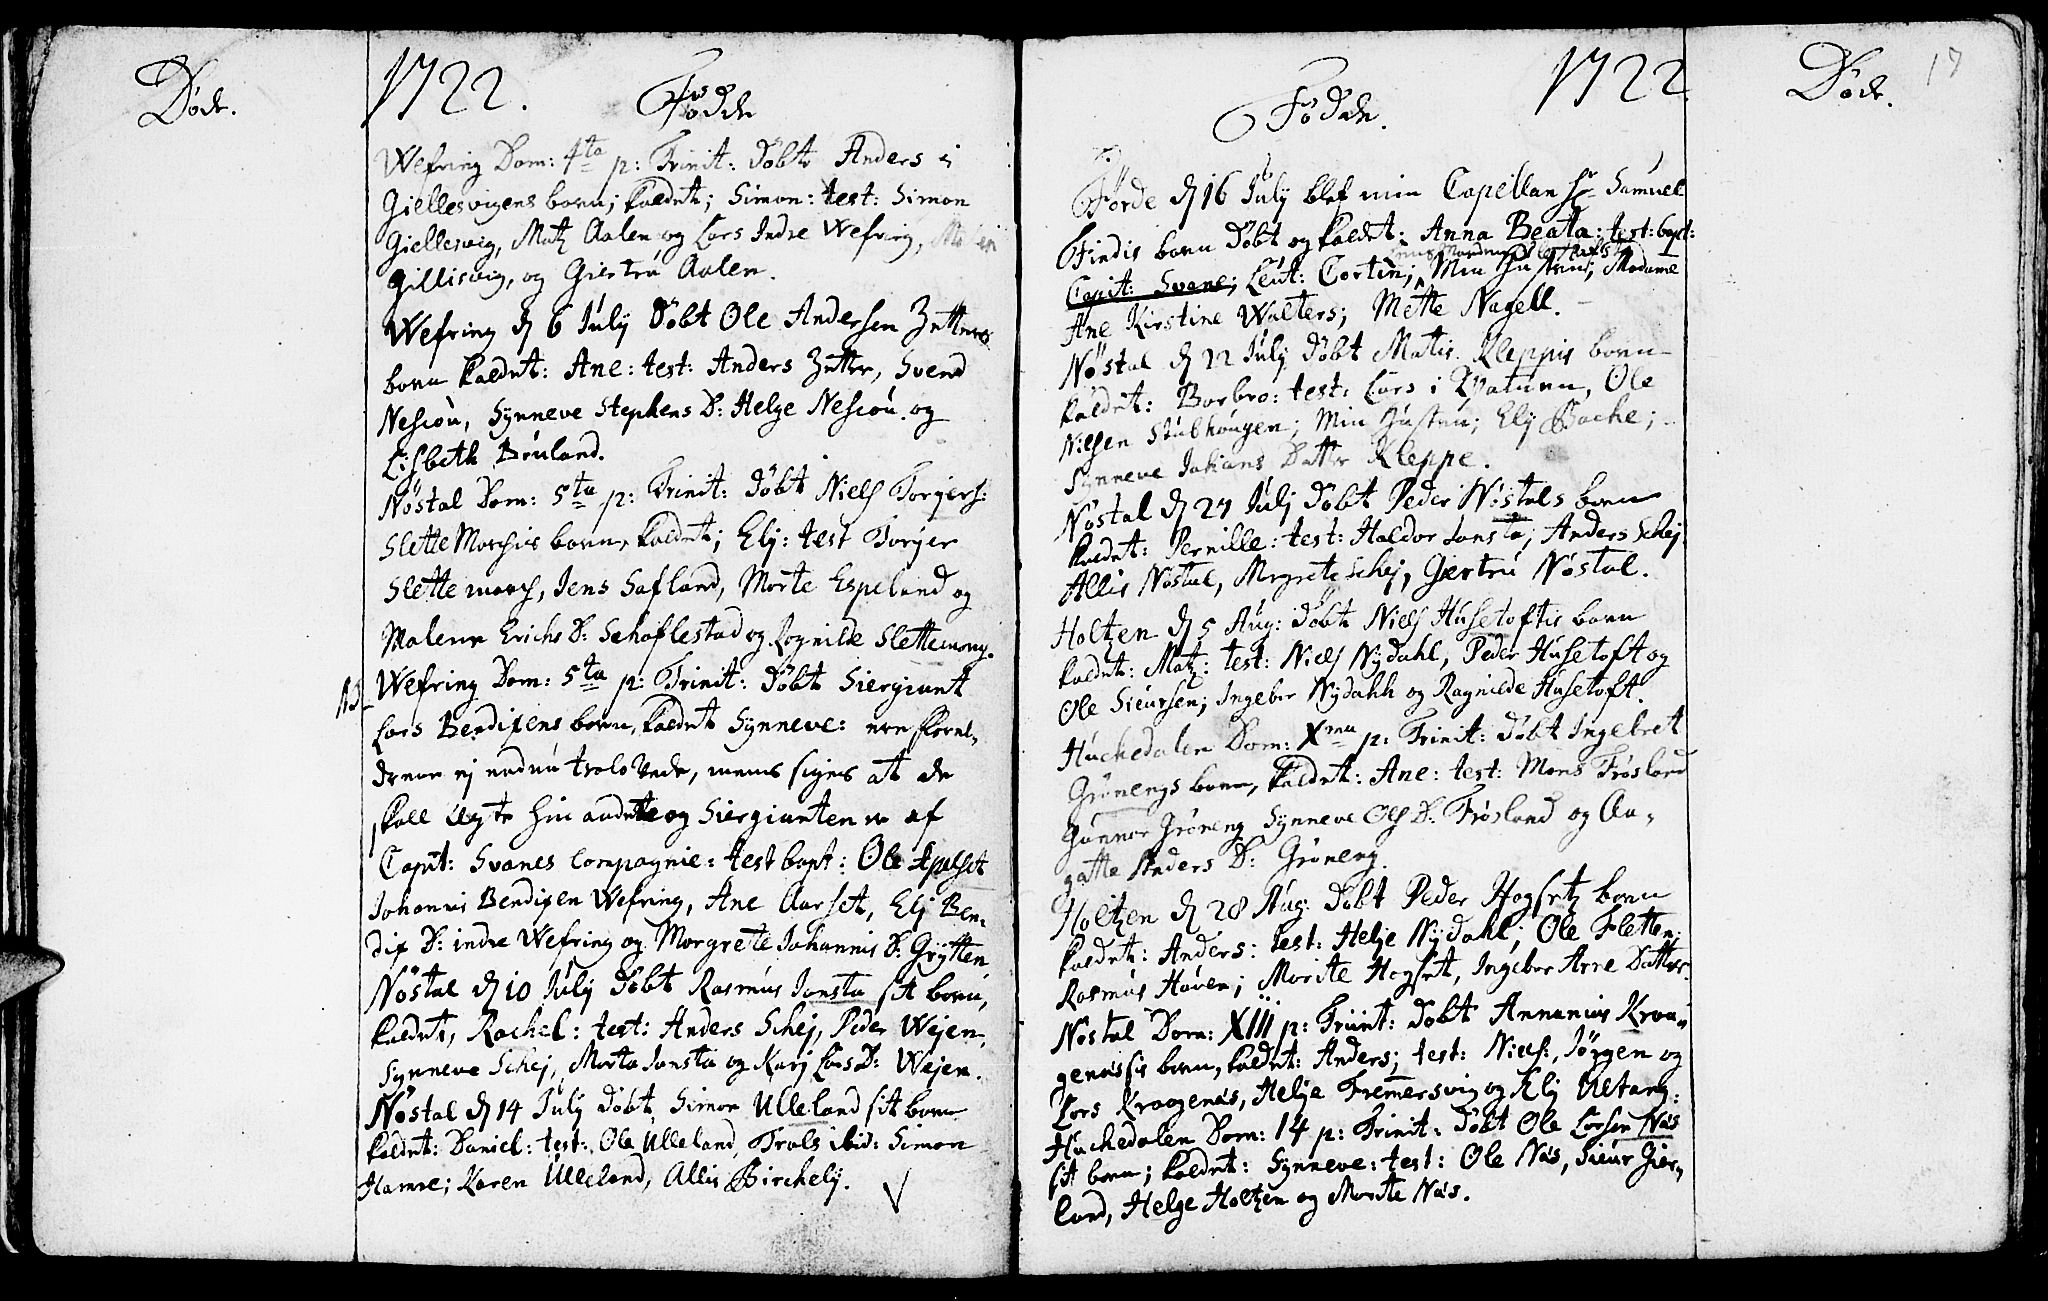 Døde.
1722.
Fødde
Wefring Dom: 4ta p: Trinit: døbt Anders i
Giellesvigens barn; kaldet; Simon: test: Simon
Giellesvig, Matz Aalen og Lars Indre Wefring,
Gillisvig, og Giertru Aalen.
Wefring d 6 July døbt Ole Andersen Zetters
barn kaldet: Ane: test: Anders Zetter, Svend
Neseou, Synneve Stephens D: Helge Neseou og
Lisbeth Bruland.
Nøstal Dom: 5ta p: Trinit: døbt Niels Torgers:
Slettemarchis barn, kaldet; Elj: test Torjer
Slettemarch, Jens Safland, Morte Espeland og
Malene Erichs D: Schaflestad og Rognilde Slettemarg.
NB
Wefring Dom: 5ta p: Trinit: døbt Siergiant
Lars Bendixens barn, kaldet Synneve: ere forel,
drene ej endnu trolovede, mens siges at de
skall ægte hin anden og Siergianten er af
Capit: Svanes Compagnie: test bapt: Ole Apelset
Johannis Bendixen Wefring, Ane Aarset, Elj Ben,
dix D: indre Wefring og Morgrete Johannis D: Grytten
Nøstal d 10 July døbt Rasmus Jonsta sit barn,
kaldet, Rachel: test: Anders Schej, Peder Wejen,
Synneve Schej, Morta Jonsta og Karj Lars D: Wejen.
Nøstal d 14 July døbt Simon Ulleland sit barn
kaldet: Daniel: test: Ole Ulleland, Trols ibid: Simon
Hamre; Karen Ulleland, Allis Birchelj.
1722.
Fødde.
Førde d 16 July blef min Capellan Hr Samuel
Findis barn døbt og kaldet: Anna Beata: test: bapt:
Capit: Svane; Leut: Cortin; Min Hustru; Madame
Ane Kirstine Walters; Mette Nagell.
Nøstal d 22 July døbt Matis Kleppis barn
kaldet: Barbro: test: Lars i Watnen, Ole
Nilsen Stubhaugen; Min Hustru; Elj Bache;
Synneve Johans Datter Kleppe.
Nøstal d 27 July døbt Peder Nøstals barn
kaldet: Pernille: test: Haldor Jonsta; Anders Schej
Allis Nøstal, Mrgrete Schej, Giertru Nøstal.
Holtzen d 5 Aug: døbt Niels Husetoftis barn
kaldet: Matz: test: Niels Nydahl, Peder Husetoft og
Ole Sieursen; Ingebor Nydahl og Ragnilde Husetoft.
Huchedalen Dom: Xma p: Trinit: døbt Ingebret
Grønengs barn, kaldet: Ane: test: Mons Frøsland
Gunnar Grøneng Synneve Ols D: Frøsland og Aa,
gatte Anders D: Grøneng.
Holtzen d 28 Aug: døbt Peder Hogsetz barn
kaldet: Anders: test: Helje Nydahl; Ole Fletten;
Rasmus Haven; Marite Hogset, Ingebor Arne Datter.
Nøstal Dom: XIII p: Trinit: døbt Annanius Kraa,,
genæssis barn, kaldet: Anders; test: Niels:, Jørgen og
Lars Kraagenæs, Helje Fremersvig og Elj Ultang:
Huchedalen Dom: 14 p: Trinit: døbt Ole Larsen Næs
sit barn; kaldet: Synneve: test: Ole Næs, Sieur Gier,
land, Helge Holtzen og Marite Næs.
Døde.
17